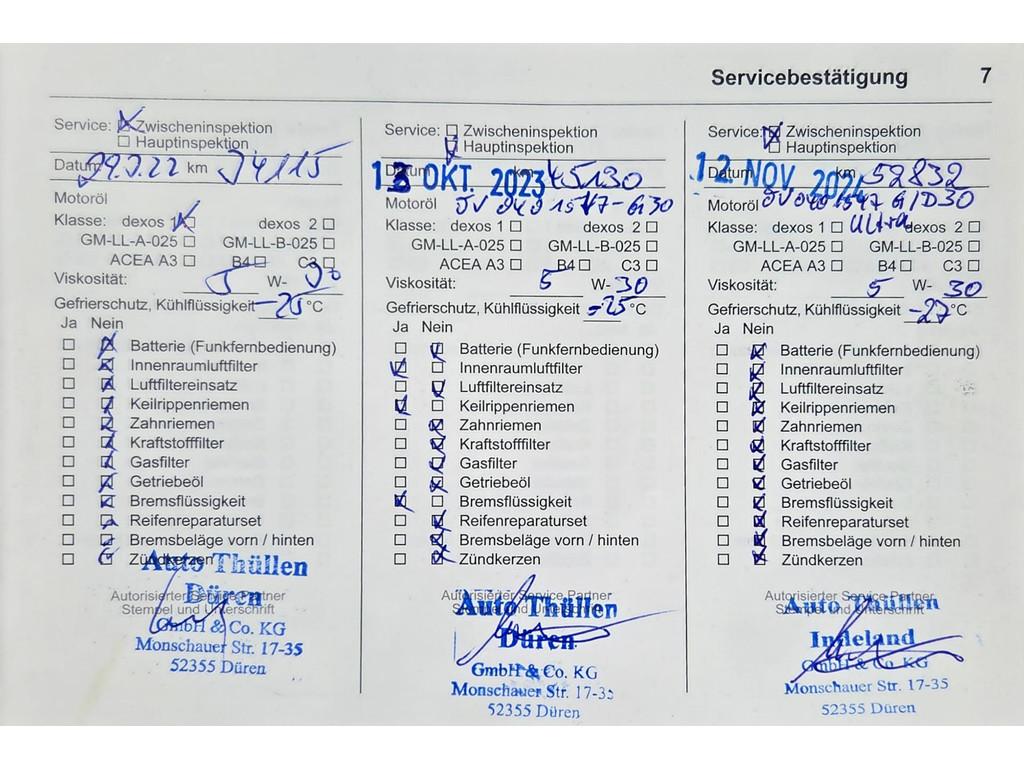 Servicebestätigung 7
Service: Zwischeninspektion
Hauptinspektion
Datum km
Motoröl
Klasse: dexos 1 dexos 2
GM-LL-A-025 GM-LL-B-025
ACEA A3 B4 C3
Viskosität: 5 W- 30
Gefrierschutz, Kühlflüssigkeit -25 °C
Ja Nein
Batterie (Funkfernbedienung)
Innenraumluftfilter
Luftfiltereinsatz
Keilrippenriemen
Zahnriemen
Kraftstofffilter
Gasfilter
Getriebeöl
Bremsflüssigkeit
Reifenreparaturset
Bremsbeläge vorn / hinten
Zündkerzen
Autorisierter Service Partner
Stempel und Unterschrift
Auto Thüllen
Düren
GmbH & Co. KG
Monschauer Str. 17-35
52355 Düren
Service: Zwischeninspektion
Hauptinspektion
Datum 13 OKT. 2023 km 45130
Motoröl
Klasse: dexos 1 dexos 2
GM-LL-A-025 GM-LL-B-025
ACEA A3 B4 C3
Viskosität: 5 W- 30
Gefrierschutz, Kühlflüssigkeit -25 °C
Ja Nein
Batterie (Funkfernbedienung)
Innenraumluftfilter
Luftfiltereinsatz
Keilrippenriemen
Zahnriemen
Kraftstofffilter
Gasfilter
Getriebeöl
Bremsflüssigkeit
Reifenreparaturset
Bremsbeläge vorn / hinten
Zündkerzen
Autorisierter Service Partner
Stempel und Unterschrift
Auto Thüllen
Düren
GmbH & Co. KG
Monschauer Str. 17-35
52355 Düren
Service: Zwischeninspektion
Hauptinspektion
Datum 12. NOV. 2024 km 52832
Motoröl
Klasse: dexos 1 Ultra dexos 2
GM-LL-A-025 GM-LL-B-025
ACEA A3 B4 C3
Viskosität: 5 W- 30
Gefrierschutz, Kühlflüssigkeit -27 °C
Ja Nein
Batterie (Funkfernbedienung)
Innenraumluftfilter
Luftfiltereinsatz
Keilrippenriemen
Zahnriemen
Kraftstofffilter
Gasfilter
Getriebeöl
Bremsflüssigkeit
Reifenreparaturset
Bremsbeläge vorn / hinten
Zündkerzen
Autorisierter Service Partner
Stempel und Unterschrift
Auto Thüllen
Indeland
GmbH & Co. KG
Monschauer Str. 17-35
52355 Düren